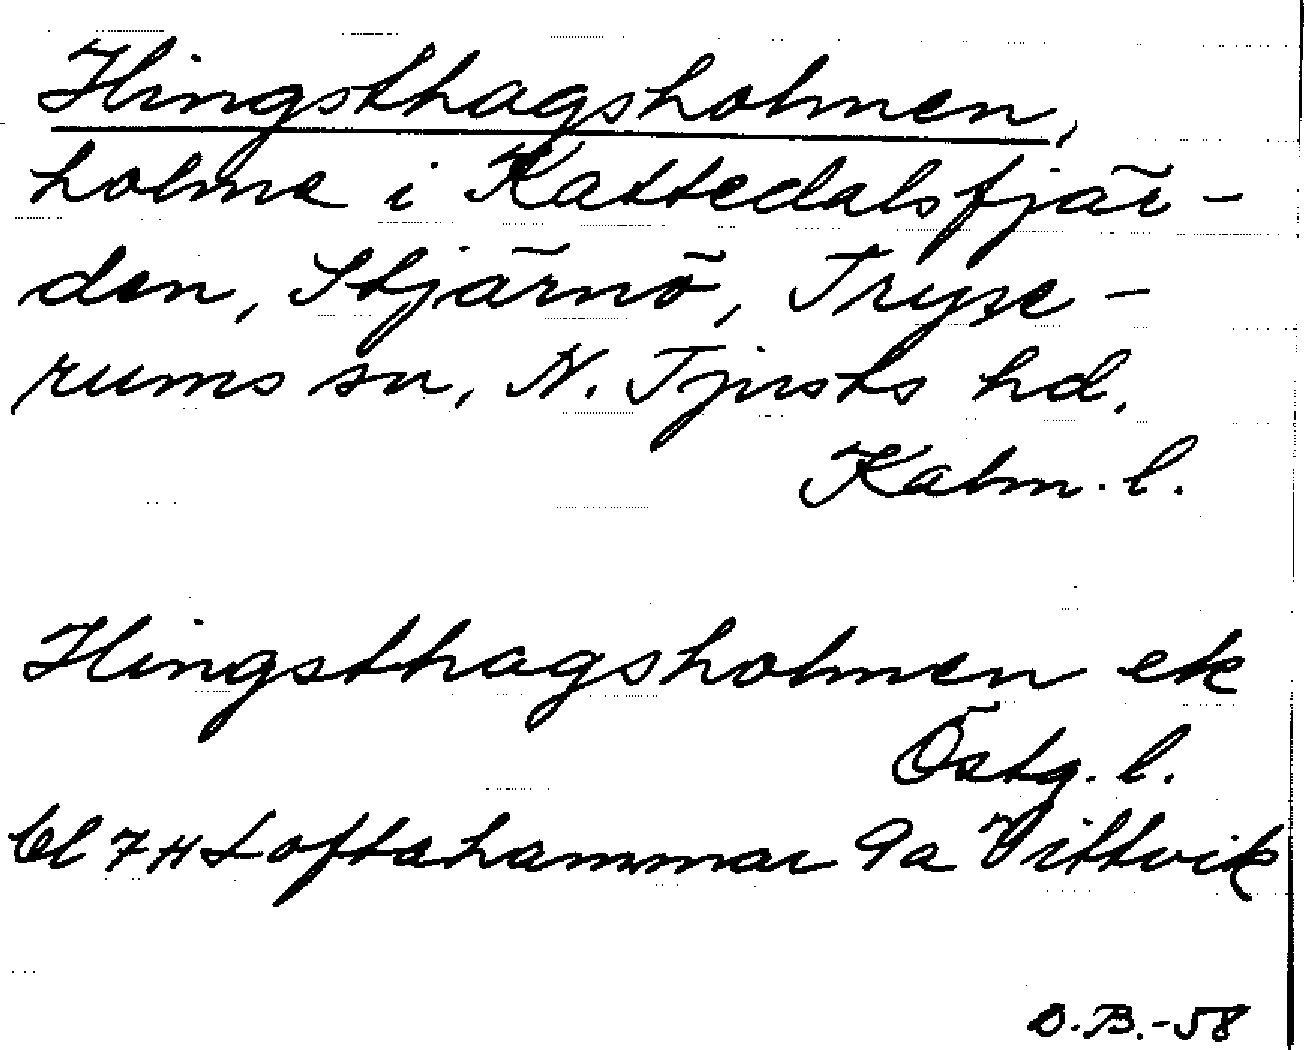 Hingsthagsholmen,
holme i Kattedalsfjär-
den, Stjärnö, Tryse-
rums sn, N. Tjusts hd.
Kalm. l.
Hingsthagsholmen ek
Östg. l.
Bl 7H Loftahammar 9a Vittvik
O.B.-58